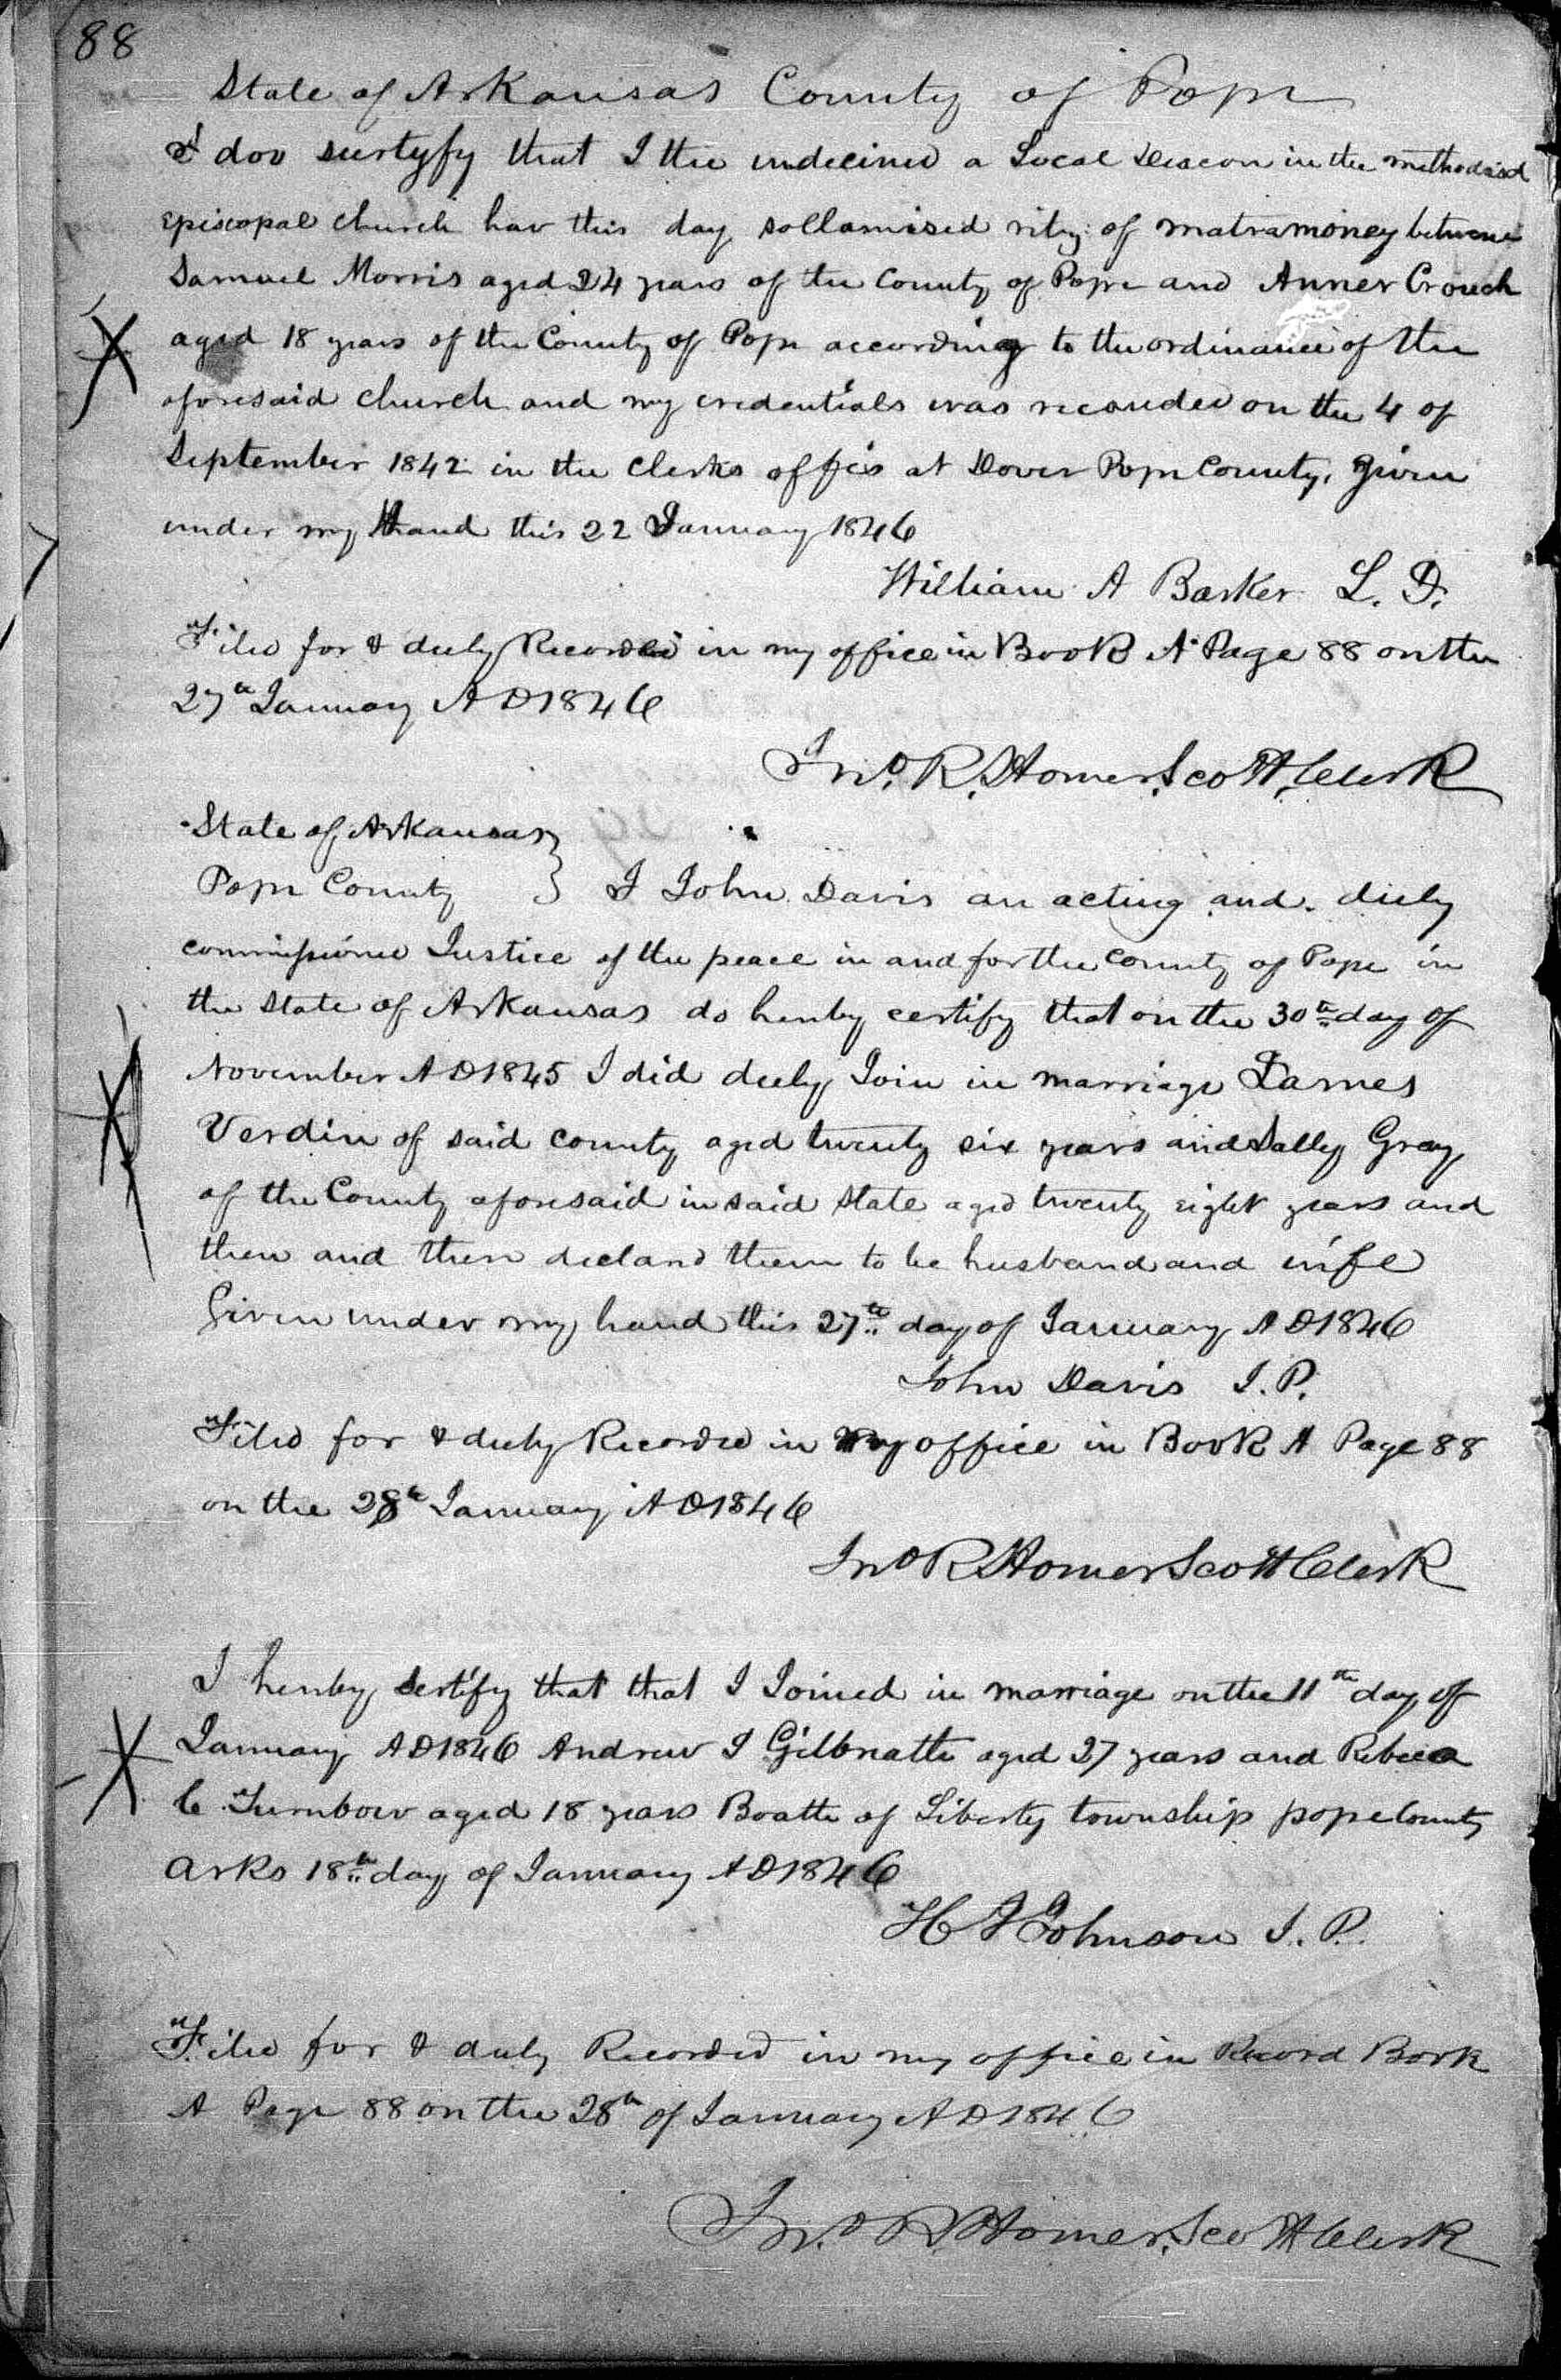 88
State of Arkansas County of Pope
I doo surtyfy that I the undecined a Local Deacon in the methodisd
Episcopal church hav this day sollamised rity of matramoney betwene
Samuel Morris aged 24 years of the County of Pope and Anner Crouch
aged 18 years of the County of Pope according to the ordinance of the
aforesaid church and my credentials was recorded on the 4 of
September 1842 in the Clerks offis at Dover Pope County, given
under my hand this 22 January 1846
William A Barker L. D.
Filed for & duly Recorded in my office in Book A Page 88 on the
27th January A D 1846
Jno. R. Homer Scott, Clerk
State of Arkansas }
Pope County } I John Davis an acting and duly
commissioned Justice of the peace in and for the County of Pope in
the State of Arkansas do hereby certify that on the 30th day of
November A D 1845 I did duly Join in marriage James
Verdin of said county aged twenty six years and Sally Gray
of the County aforesaid in said State aged twenty eight years and
then and there declared them to be husband and wife
Given under my hand this 27th day of January A D 1846
John Davis J. P.
Filed for & duly Recorded in my office in Book A Page 88
on the 28th January A D 1846
Jno R Homer Scott Clerk
I hereby Certify that that I Joined in marriage on the 11th day of
January A D 1846 Andrew J Gilbreath aged 27 years and Rebecca
C Turnbow aged 18 years Boath of Liberty township pope County
Arks 18th day of January A D 1846
H J Johnson J. P.
Filed for & duly Recorded in my office in Record Book
A Page 88 on the 28th of January A D 1846
Jno. R. Homer Scott Clerk